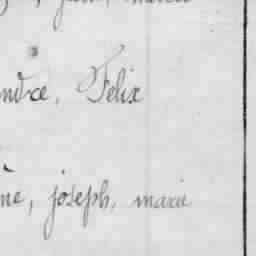 ndre, Felix
ne, joseph, marie